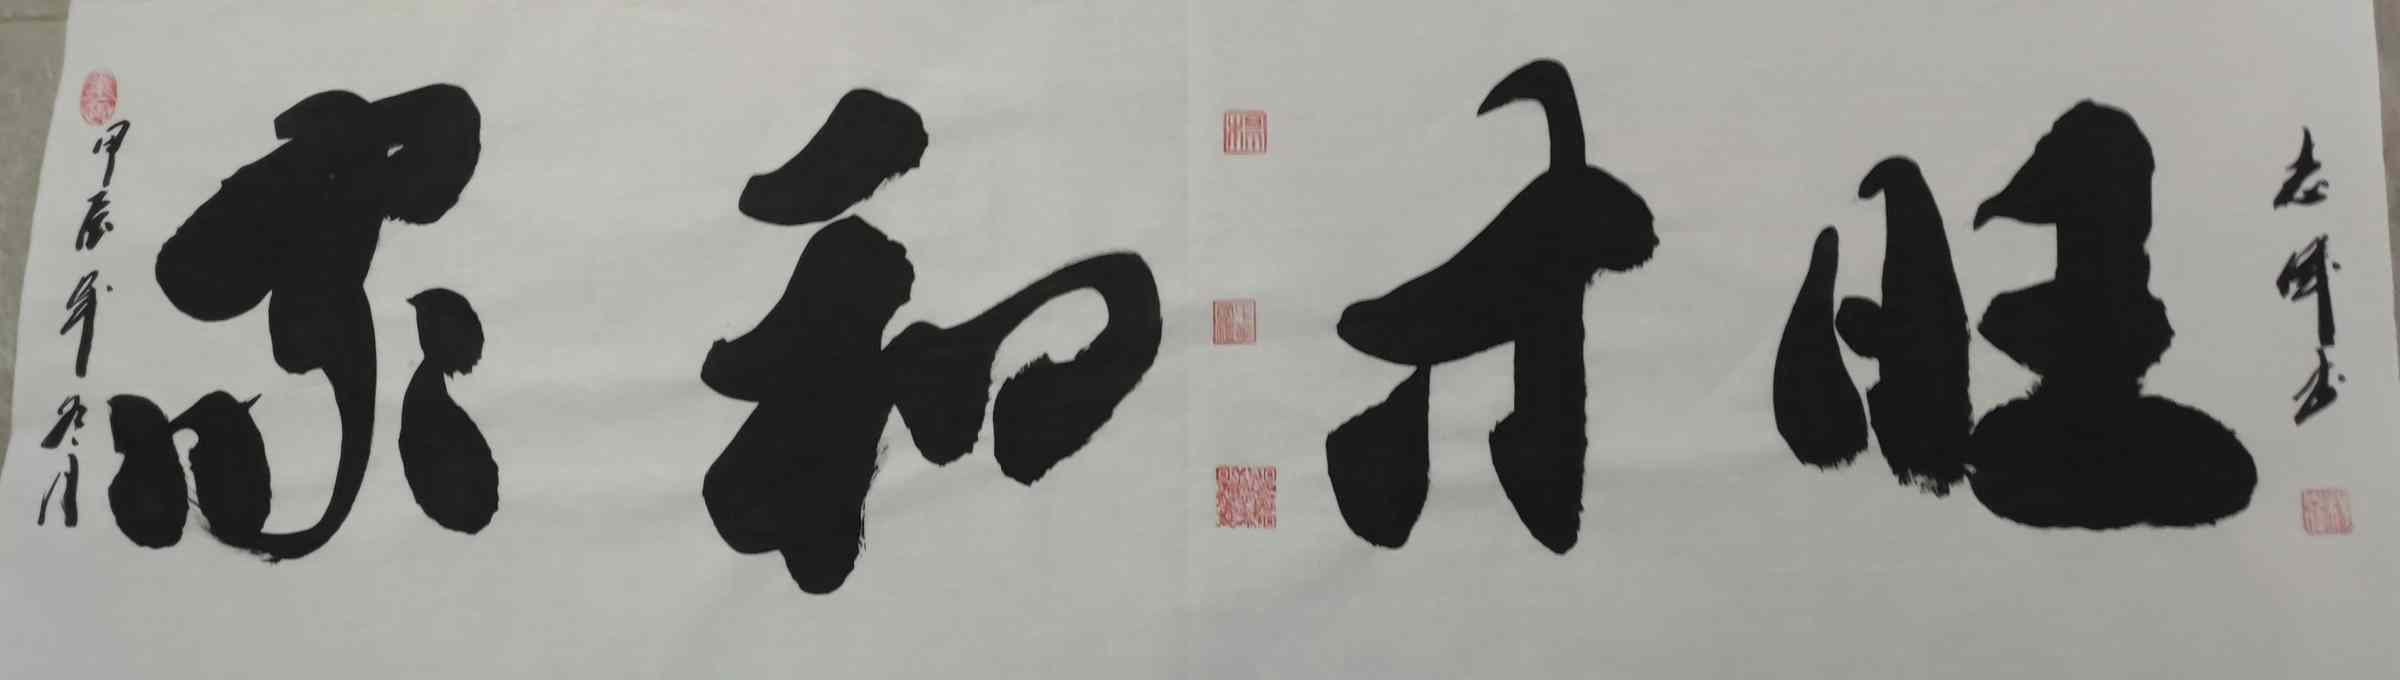 甲辰年冬月
家和才旺
志 书